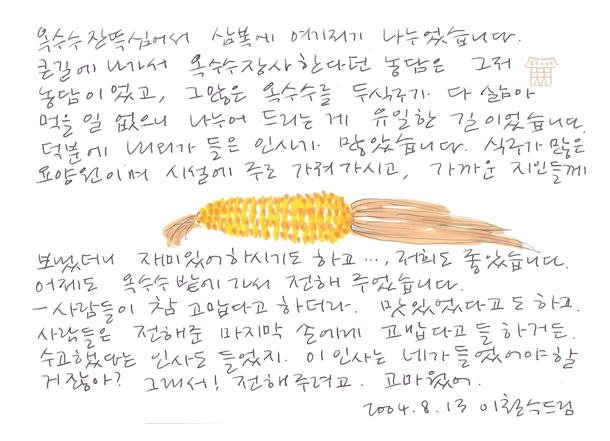 옥수수 잔뜩 심어서 삼복에 여기저기 나누었습니다.
큰길에 나가서 옥수수장사 한다던 농담은 그저
농담이었고, 그많은 옥수수를 두식구가 다 삶아
먹을 일 없으니 나누어 드리는게 유일한 길이었습니다.
덕분에 내외가 들은 인사가 많았습니다. 식구가 많은
요양원이며 시설에 주로 가져가시고, 가까운 지인들께
보냈더니 재미있어하시기도 하고…, 저희도 좋았습니다.
어제도 옥수수 밭에 가서 전해 주었습니다.
– 사람들이 참 고맙다고 하더라. 맛있었다고도 하고.
사람들은 전해준 마지막 손에게 고맙다고들 하거든.
수고했다는 인사도 들었지. 이 인사는 네가 들었어야 할
거잖아? 그래서! 전해주려고. 고마웠어.
2004.8.13 이철수드림